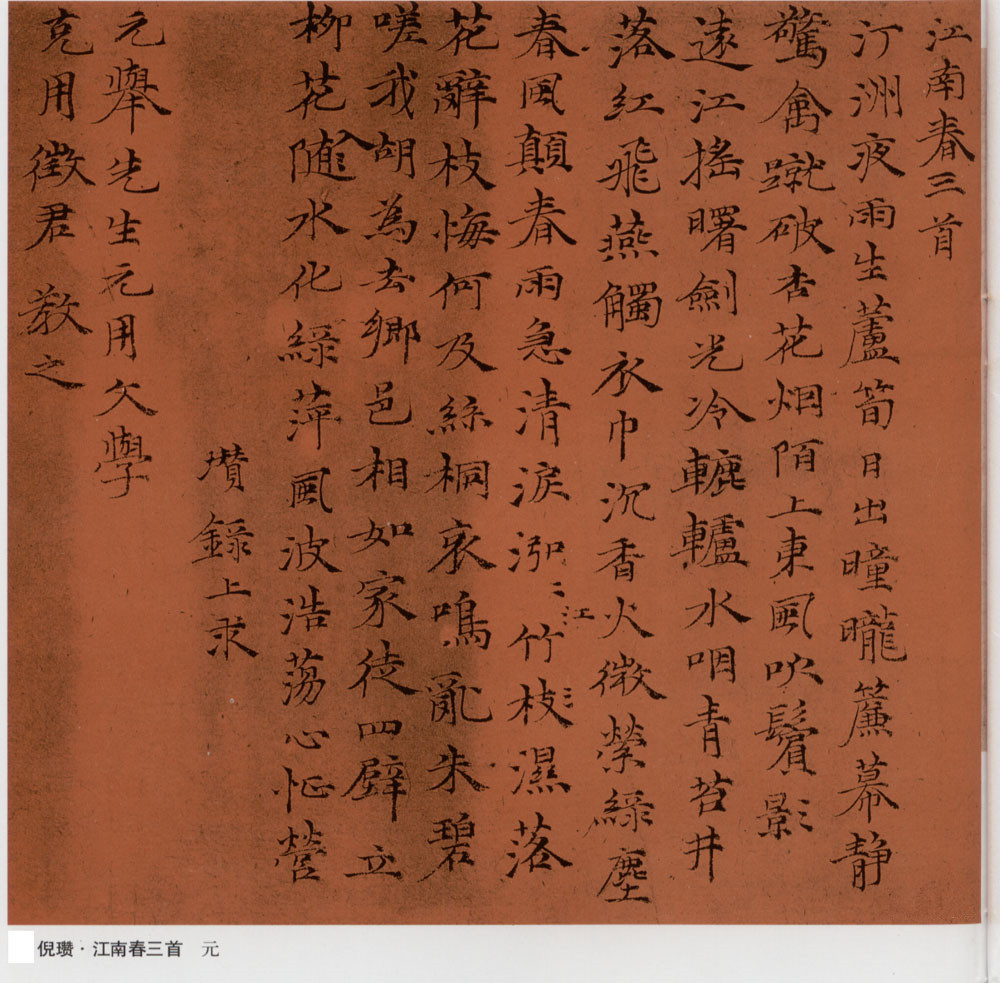 江南春三首
汀洲夜雨生蘆筍日出曈曨簾幕静
驚禽蹴破杏花烟陌上東風吹鬢影
遠江搖曙劍光冷轆轤水咽青苔井
落紅飛燕觸衣巾沉香火微縈綠塵
春風顛春雨急清淚泓〻江竹枝濕落
花辭枝悔何及絲桐哀鳴亂朱碧
嗟我胡為去鄉邑相如家徒四壁立
柳花入随水化綠萍風波浩蕩心怔營
瓚錄上求
元舉先生元用文學
克用徵君教之
倪瓒·江南春三首 元